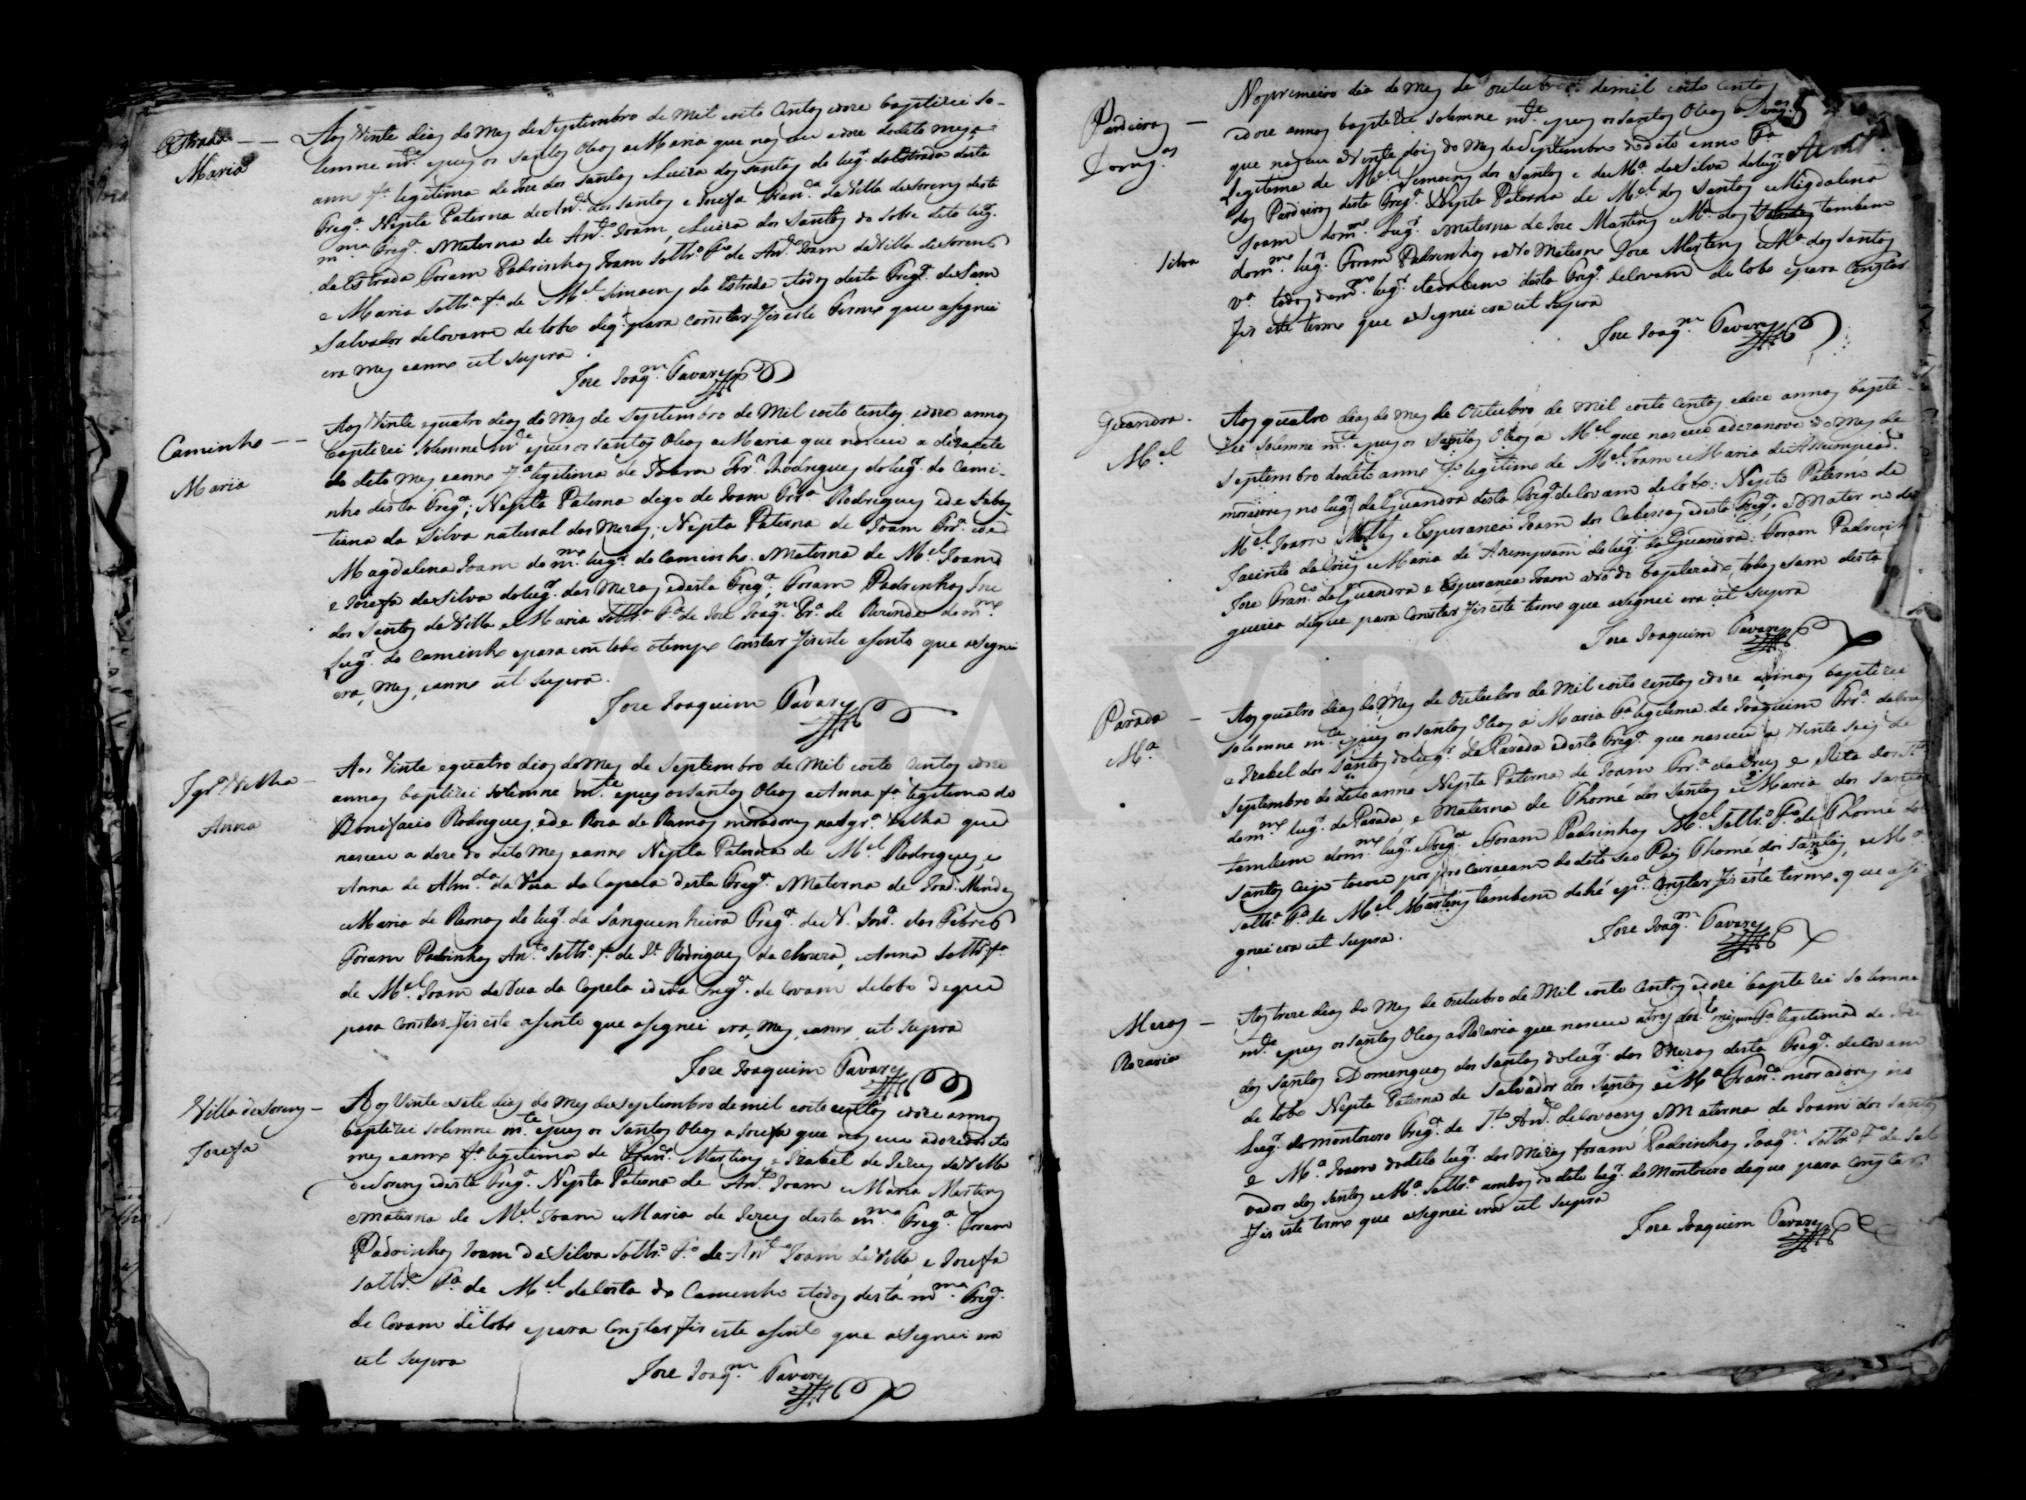 Estrada
Maria
Aos Vinte dias do Mes de Septembro de Mil oito Centos e doze baptizei so-
lemne m.te e pus os santos Oleos a Maria que nasceu a doze do dito mes e
anno f.a legitima de Jose dos Santos e Luiza dos Santos do lug.r da Estrada desta
Freg.a Nepta Paterna de An.to dos Santos e Josefa Fran.ca da Villa de Soreins desta
m.ma Freg.a e Materna de An.to Joam, e Luiza dos Santos do sobre dito lug.r
da Estrada Foram Padrinhos Joam Soltr.o f.o de An.to Joam da Villa de Soreins
e Maria Soltr.a f.a de M.el Simoens da Estrada e todos desta Freg.a de Sam
Salvador de Covam de Lobo e para constar fis este Termo que asignei
era mes e anno ut supra
Jose Joaq.m Tavares
Caminho
Maria
Aos Vinte e quatro dias do Mes de Septembro de Mil oito Centos e doze annos
baptizei solemne m.te e pus os santos Oleos a Maria que nasceu a dezasete
do dito mes e anno f.a legitima de Joam Frr.a Rodrigues do lug.r do Cami-
nho desta Freg.a; Nepta Paterna digo de Joam Frr.a Rodrigues e de Sabas
tiana da Silva natural dos Meros; Nepta Paterna de Joam Frr.a e de
Magdalena Joam do m.mo lug.r do Caminho e Materna de M.el Joam
e Josefa da Silva do lug.r dos Meros e desta Freg.a; Foram Padrinhos Jose
dos Santos da Villa e Maria Soltr.a F.a de Jose Joaq.m Frr.a de Rezende do m.mo
Lug.r do Caminho e para em todo o tempo Constar fis este asento que asignei
era, mes, e anno ut supra.
Jose Joaquim Tavares
Igr.a Velha
Anna
Aos Vinte e quatro dias do Mes de Septembro de Mil oito Centos e doze
annos baptizei solemne m.te e pus os santos Oleos a Anna f.a legitima de
Bonifacio Rodrigues, e de Roza de Ramos moradores na Igr.a Velha que
nasceu a doze do dito Mes e anno Nepta Paterna de M.el Rodrigues, e
Anna de Alm.da da Vua da Capela desta Freg.a e Materna de Mendes
e Maria de Ramos do lug.r da Sanguinheira Freg.a de N. Snr.a dos Febres
Foram Padrinhos An.to Soltr.o f.o de Rodrigues da Choura, e Anna Soltr.a f.a
de M.el Joam da Vua da Capela e desta Freg.a de Covam de Lobo de que
para Constar fis este asento que asignei era, Mes, e anno, ut supra
Jose Joaquim Tavares
Villa de Soreins
Josefa
Aos Vinte e sete dias do Mes de Septembro de mil oito centos e doze annos
baptizei solemne m.te e pus os santos Oleos a Josefa que nasceu a doze do dito
mes e anno f.a legitima de Fran.co Martins e Izabel de Jezus da Villa
de Soreins e desta Freg.a Nepta Paterna de An.to Joam e Maria Martins
e Materna de M.el Joam e Maria de Jezus desta m.ma Freg.a Foram
Padrinhos Joam da Silva Soltr.o F.o de An.to Joam da Villa, e Josefa
Soltr.a F.a de M.el da Costa do Caminho e todos desta m.ma Freg.a
de Covam de Lobo e para Constar fis este asento que asignei era
ut supra
Jose Joaq.m Tavares
5
Pardeiros
Domg.os
Silva
No primeiro dia do Mes de Outubro de mil oito centos
e doze annos baptizei solemne m.te e pus os santos Oleos a Domg.os
que nasceu a Vinte dois do Mes de Septembro do dito anno F.o
Legitimo de M.el Simoens dos Santos e de M.a da Silva do lug.r
dos Pardeiros desta Freg.a Nepto Paterno de M.el dos Santos e Migdalena
Joam do m.mo Lug.r e materno de Jose Martins e M.a dos tambem
do m.mo lug.r Foram Padrinhos o Avo Materno Jose Martins e M.a dos Santos
V.a todos do m.mo lug.r e tambem desta Freg.a de Covam de Lobo e para Constar
fis este termo que asignei era ut supra
Jose Joaq.m Tavares
Guandra.
M.el
Aos quatro dias do Mes de Outubro de Mil oito Centos e doze annos bapti-
zei solemne m.te e pus os Santos Oleos a M.el que nasceu a dezanove do Mes de
Septembro do dito anno f.o legitimo de M.el Joam e Maria de Assumpçaõ
moradores no lug.r da Guandra desta Freg.a de Covam de Lobo; Nepto Paterno de
M.el Joam e Esperança Joam dos Cabessos e desta Freg.a, e Materno de
Jacinto da Cruz e Maria de Asumpsam do lug.r da Guandra. Foram Padrinhos
Jose Fran.co da Guandra e Esperança Joam avó do baptizado todos sam desta
guezia de que para Constar fis este termo que asignei era ut supra
Jose Joaquim Tavares
Parada
M.a
Aos quatro dias do Mes de Outubro de Mil oito centos e doze annos baptizei
solemne m.te e pus os santos Oleos a Maria F.a legitima de Joaquim Frr.a da Cruz
e Izabel dos Santos do lug.r da Parada e desta Freg.a que nasceu a Vinte seis de
Septembro do dito anno Nepta Paterna de Joam Frr.a da Cruz e Rita dos S.tos
do m.mo lug.r da Parada e Materna de Thomé dos Santos e Maria dos Santos
tambem do m.mo lug.r e Freg.a Foram Padrinhos M.el Soltr.o F.o de Thomé dos
Santos cujo tocou por procuracam do dito seo Pay Thomé dos Santos, e M.a
Soltr.a F.a de M.el Martins tambem dahé e p.a Constar fis este termo. que asi-
gnei era ut supra.
Jose Joaq.m Tavares
Meros
Rozaria
Aos treze dias do Mes de Outubro de Mil oito Centos e doze baptizei solemne
m.te e pus os santos Oleos a Rozaria que nasceu a tres do dito mes f.a legitima de Jose
dos Santos e Domingas dos Santos do lug.r dos Meros desta Freg.a de Covam
de Lobo Nepta Paterna de Salvador dos Santos e M.a Fran.ca moradores no
Lug.r do Montouro Freg.a de S.to An.to de Covoens e Materna de Joam dos Santos
e M.a Joam do dito lug.r dos Meros foram Padrinhos Joaq.m Soltr.o F.o de Sal
vador dos Santos e M.a Soltr.a ambos do dito lug.r do Montouro de que para Constar
fis este termo que asignei era ut supra
Jose Joaquim Tavares
ADAVR